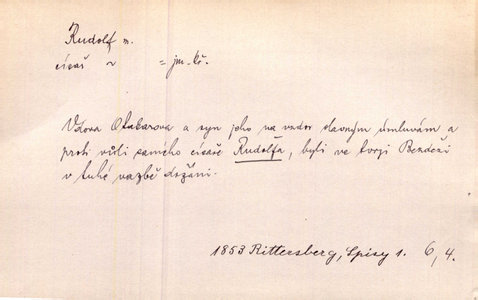 Rudolf m.
císař ~ = jm. kř.
Vdova Otakarova a syn jeho na vzdor slavným úmluvám a
proti vůli samého císaře Rudolfa, byli ve tvrzi Bezdězi
v tuhé vazbě držáni.
1853 Rittersberg, Spisy 1. 6/4.